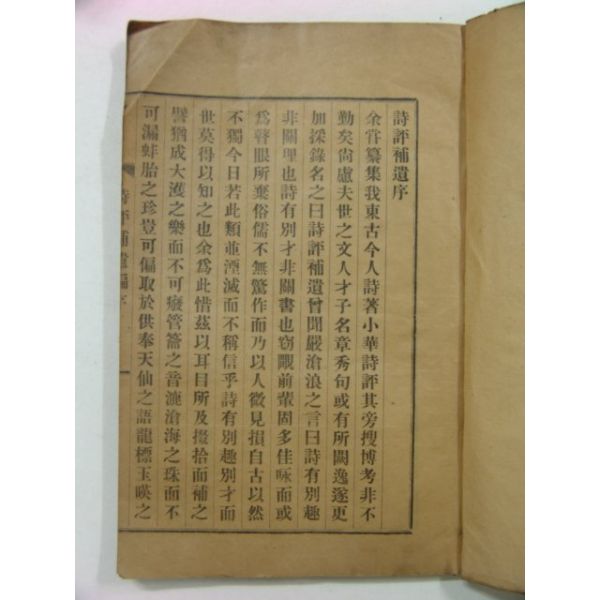 詩評補遺序
余嘗纂集我東古今人詩著小華詩評其旁搜博考非不
勤矣尙慮夫世之文人才子名章秀句或有所闕逸遂更
加採錄名之曰詩評補遺曾聞嚴滄浪之言曰詩有別趣
非關理也詩有別才非關書也窃覵前輩固多佳咏而或
爲瞽眼所棄俗儒不無驚作而乃以人微見損自古以然
不獨今日若此類並湮滅而不稱信乎詩有別趣別才而
世莫得以知之也余爲此惜茲以耳目所及掇拾而補之
譬猶成大濩之樂而不可癈管籥之音漉滄海之珠而不
可漏蚌胎之珍豈可偏取於供奉天仙之語龍標玉暎之
詩評補遺編序